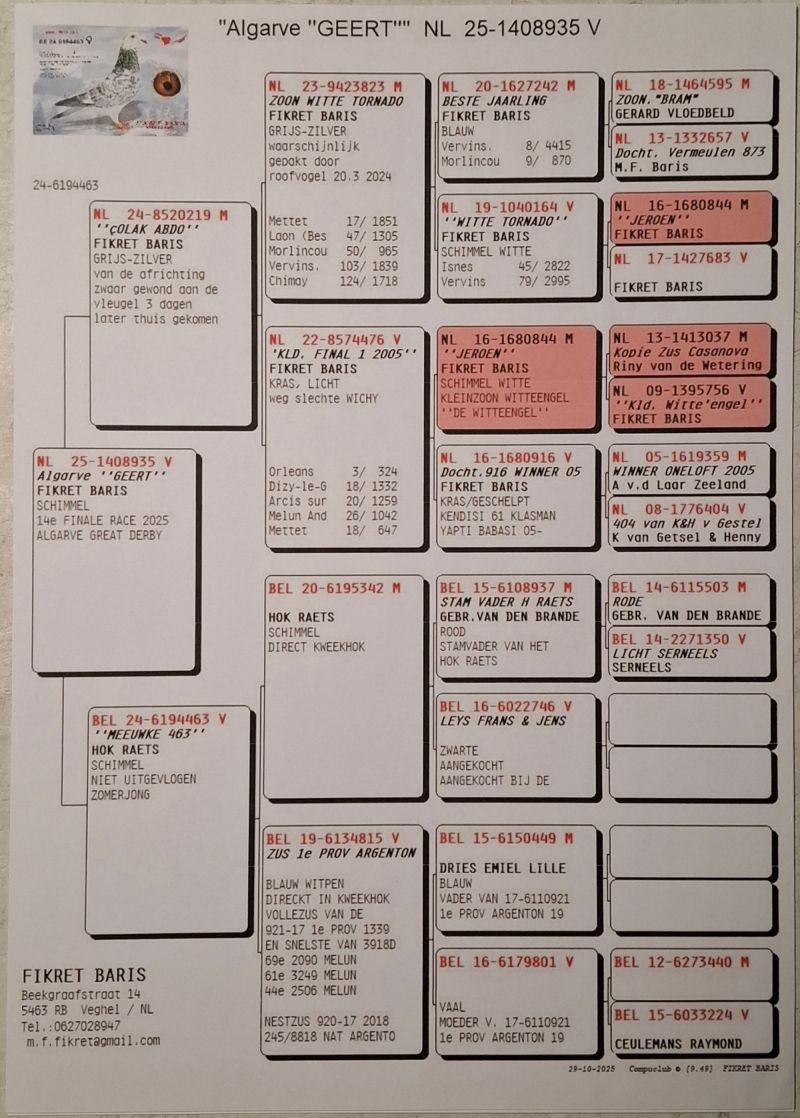 "Algarve "GEERT"" NL 25-1408935 V
24-6194463
NL 25-1408935 V
Algarve ''GEERT''
FIKRET BARIS
SCHIMMEL
14e FINALE RACE 2025
ALGARVE GREAT DERBY
NL 24-8520219 M
''ÇOLAK ABDO''
FIKRET BARIS
GRIJS-ZILVER
van de africhting
zwaar gewond aan de
vleugel 3 dagen
later thuis gekomen
BEL 24-6194463 V
''MEEUWKE 463''
HOK RAETS
SCHIMMEL
NIET UITGEVLOGEN
ZOMERJONG
NL 23-9423823 M
ZOON WITTE TORNADO
FIKRET BARIS
GRIJS-ZILVER
waarschijnlijk
gepakt door
roofvogel 20.3 2024
Mettet 17/ 1851
Laon (Bes 47/ 1305
Morlincou 50/ 965
Vervins. 103/ 1839
Chimay 124/ 1718
NL 22-8574476 V
'KLD. FINAL 1 2005''
FIKRET BARIS
KRAS, LICHT
weg slechte WICHY
Orleans 3/ 324
Dizy-le-G 18/ 1332
Arcis sur 20/ 1259
Melun And 26/ 1042
Mettet 18/ 647
BEL 20-6195342 M
HOK RAETS
SCHIMMEL
DIRECT KWEEKHOK
BEL 19-6134815 V
ZUS 1e PROV ARGENTON
BLAUW WITPEN
DIRECKT IN KWEEKHOK
VOLLEZUS VAN DE
921-17 1e PROV 1339
EN SNELSTE VAN 3918D
69e 2090 MELUN
61e 3249 MELUN
44e 2506 MELUN
NESTZUS 920-17 2018
245/8818 NAT ARGENTO
NL 20-1627242 M
BESTE JAARLING
FIKRET BARIS
BLAUW
Vervins. 8/ 4415
Morlincou 9/ 870
NL 19-1040164 V
''WITTE TORNADO''
FIKRET BARIS
SCHIMMEL WITTE
Isnes 45/ 2822
Vervins 79/ 2995
NL 16-1680844 M
''JEROEN''
FIKRET BARIS
SCHIMMEL WITTE
KLEINZOON WITTEENGEL
''DE WITTEENGEL''
NL 16-1680916 V
Docht.916 WINNER 05
FIKRET BARIS
KRAS/GESCHELPT
KENDISI 61 KLASMAN
YAPTI BABASI 05-
BEL 15-6108937 M
STAM VADER H RAETS
GEBR.VAN DEN BRANDE
ROOD
STAMVADER VAN HET
HOK RAETS
BEL 16-6022746 V
LEYS FRANS & JENS
ZWARTE
AANGEKOCHT
AANGEKOCHT BIJ DE
BEL 15-6150449 M
DRIES EMIEL LILLE
BLAUW
VADER VAN 17-6110921
1e PROV ARGENTON 19
BEL 16-6179801 V
VAAL
MOEDER V. 17-6110921
1e PROV ARGENTON 19
NL 18-1464595 M
ZOON. "BRAM"
GERARD VLOEDBELD
NL 13-1332657 V
Docht. Vermeulen 873
M.F. Baris
NL 16-1680844 M
''JEROEN''
FIKRET BARIS
NL 17-1427683 V
FIKRET BARIS
NL 13-1413037 M
Kopie Zus Casanova
Riny van de Wetering
NL 09-1395756 V
''Kld. Witte'engel''
FIKRET BARIS
NL 05-1619359 M
WINNER ONELOFT 2005
A v.d Laar Zeeland
NL 08-1776404 V
404 van K&H v Gestel
K van Getsel & Henny
BEL 14-6115503 M
RODE
GEBR. VAN DEN BRANDE
BEL 14-2271350 V
LICHT SERNEELS
SERNEELS
BEL 12-6273440 M
BEL 15-6033224 V
CEULEMANS RAYMOND
FIKRET BARIS
Beekgraafstraat 14
5463 RB Veghel / NL
Tel.:0627028947
m.f.fikret@gmail.com
29-10-2025 Compuclub © [9.49] FIKRET BARIS